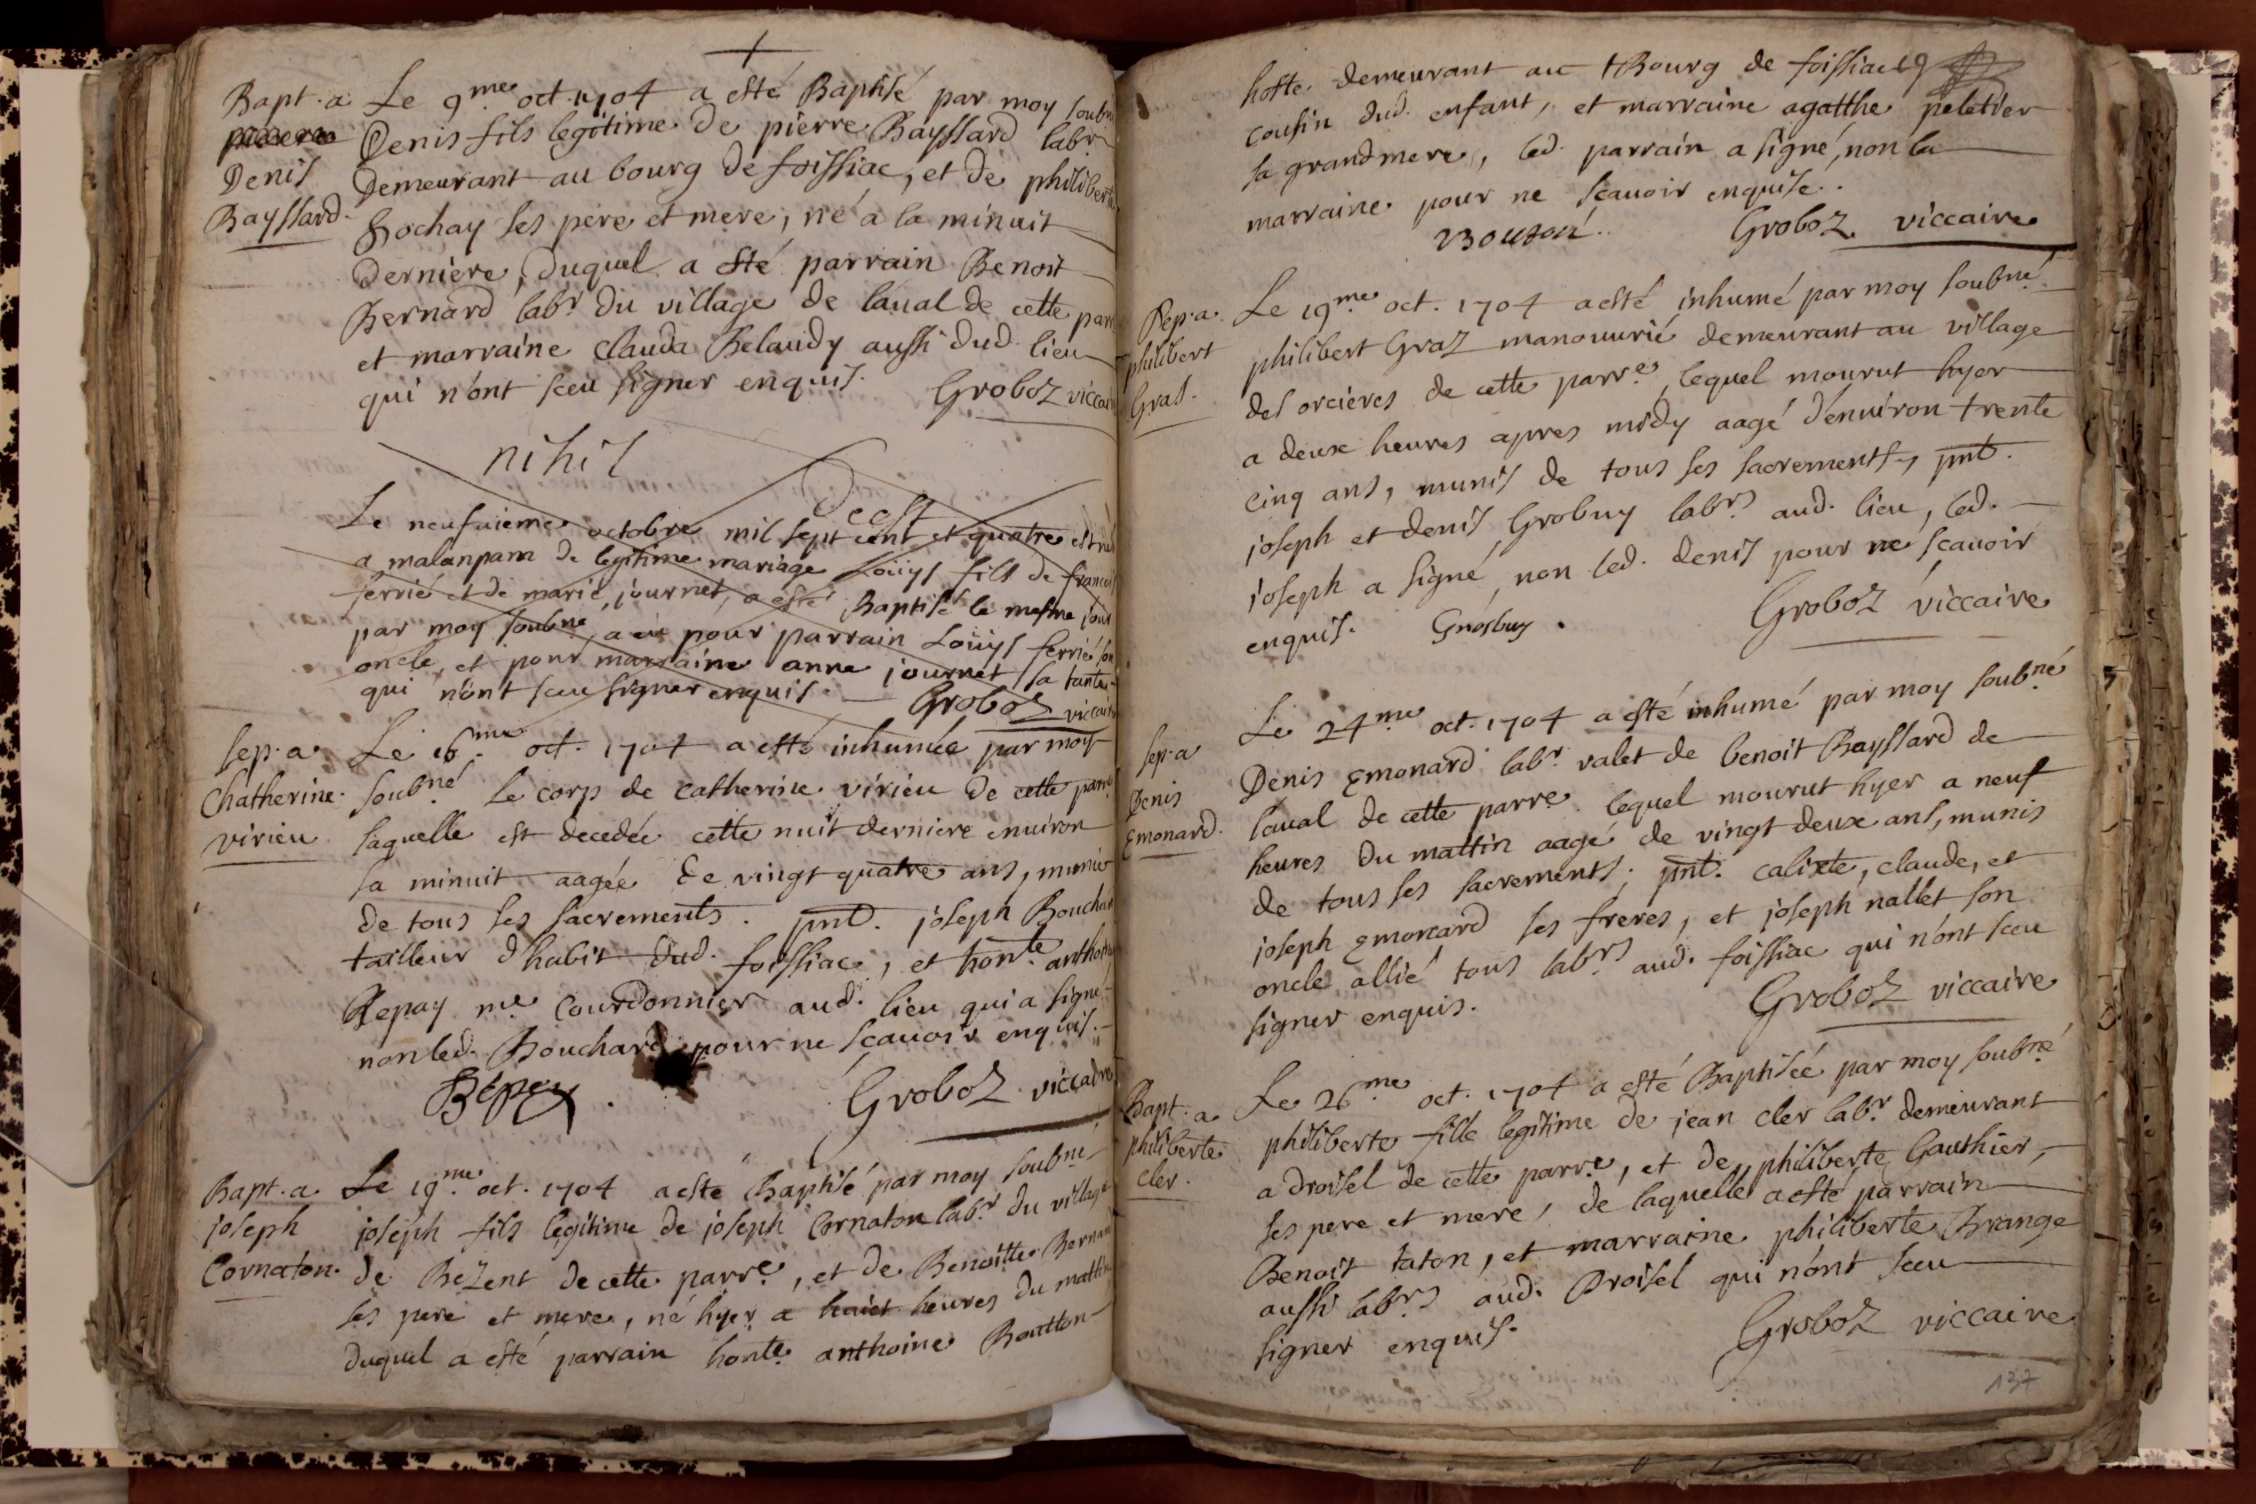 Bapt. a
Denis
Bayssard.
Le 9.me oct. 1704 a esté Baptisé par moy soubné
Denis fils legitime de pierre Bayssard labr
demeurant au bourg de foissiac, et de philiberte
Rochay ses pere et mere, né a la minuit
derniere, duquel a esté parrain Benoit
Bernard labr du village de laval de cette parre
et marraine clauda Belaudy aussi dud. lieu
qui n'ont sceu signer enquis. Groboz viccaire
nihil
deest
Le neufuieme octobre mil sept cent et quatre est né
a malanpam de legitime mariage Loüys fils de francois
ferrié et de marie journet, a esté Baptisé le mesme jour
par moy soubné, a eu pour parrain Loüys ferrié son
oncle, et pour marraine anne journet sa tante
qui n'ont sceu signer enquis. Groboz viccaire
sep. a
Chatherine
virieu
Le 16.me oct. 1704 a esté inhumée par moy
soubné le corps de catherine virieu de cette parre
laquelle est decedée cette nuit derniere enuiron
la minuit aagée de vingt quatre ans, munie
de tous ses sacrements. pnt. joseph Bouchard
tailleur d'habit dud. foissiac, et honte. anthoine
Repay me courdonnier aud. lieu qui a signé
non led. Bouchard pour ne scauoir enquis.
Groboz viccaire
Bapt. a
joseph
Cornaton.
Le 19.me oct. 1704 a esté Baptisé par moy soubné
joseph fils legitime de joseph Cornaton labr du village
de Bezent de cette parre, et de Benoitte Bernard
ses pere et mere, né hyer a huict heures du mattin
duquel a esté parrain honte. anthoine Boutton
hoste demeurant au Bourg de foissiac
cousin dud. enfant, et marraine agatthe peletier
sa grandmere, led. parrain a signé, non la
marraine pour ne scauoir enquise.
Groboz viccaire
Sep. a
philibert
Gras.
Le 19.me oct. 1704 a esté inhumé par moy soubné
philibert Graz manouurié demeurant au village
des orcieres de cette parre, lequel mourut hyer
a deux heures apres midy aagé d'enuiron trente
cinq ans, munis de tous ses sacrements, pnt.
joseph et denis Grobuy labrs aud. lieu, led.
joseph a signé, non led. denis pour ne scauoir
enquis. Grosbuy. Groboz viccaire
sep. a
Denis
Emonard.
Le 24.me oct. 1704 a esté inhumé par moy soubné
Denis Emonard labr valet de benoit Bayssard de
laual de cette parre. lequel mourut hyer a neuf
heures du mattin aagé de vingt deux ans, munis
de tous ses sacrements; pnt. calixte, claude, et
joseph Emonard ses freres, et joseph nallet son
oncle allié tous labrs aud. foissiac qui n'ont sceu
signer enquis. Groboz viccaire
Bapt. a
philiberte
cler.
Le 26.me oct. 1704 a esté Baptisée par moy soubné
philiberte fille legitime de jean cler labr demeurant
a droisel de cette parre, et de philiberte Gauthier,
ses pere et mere, de laquelle a esté parrain
Benoit taton, et marraine philiberte Brange
aussi labrs aud. Droisel qui n'ont sceu
signer enquis. Groboz viccaire
137